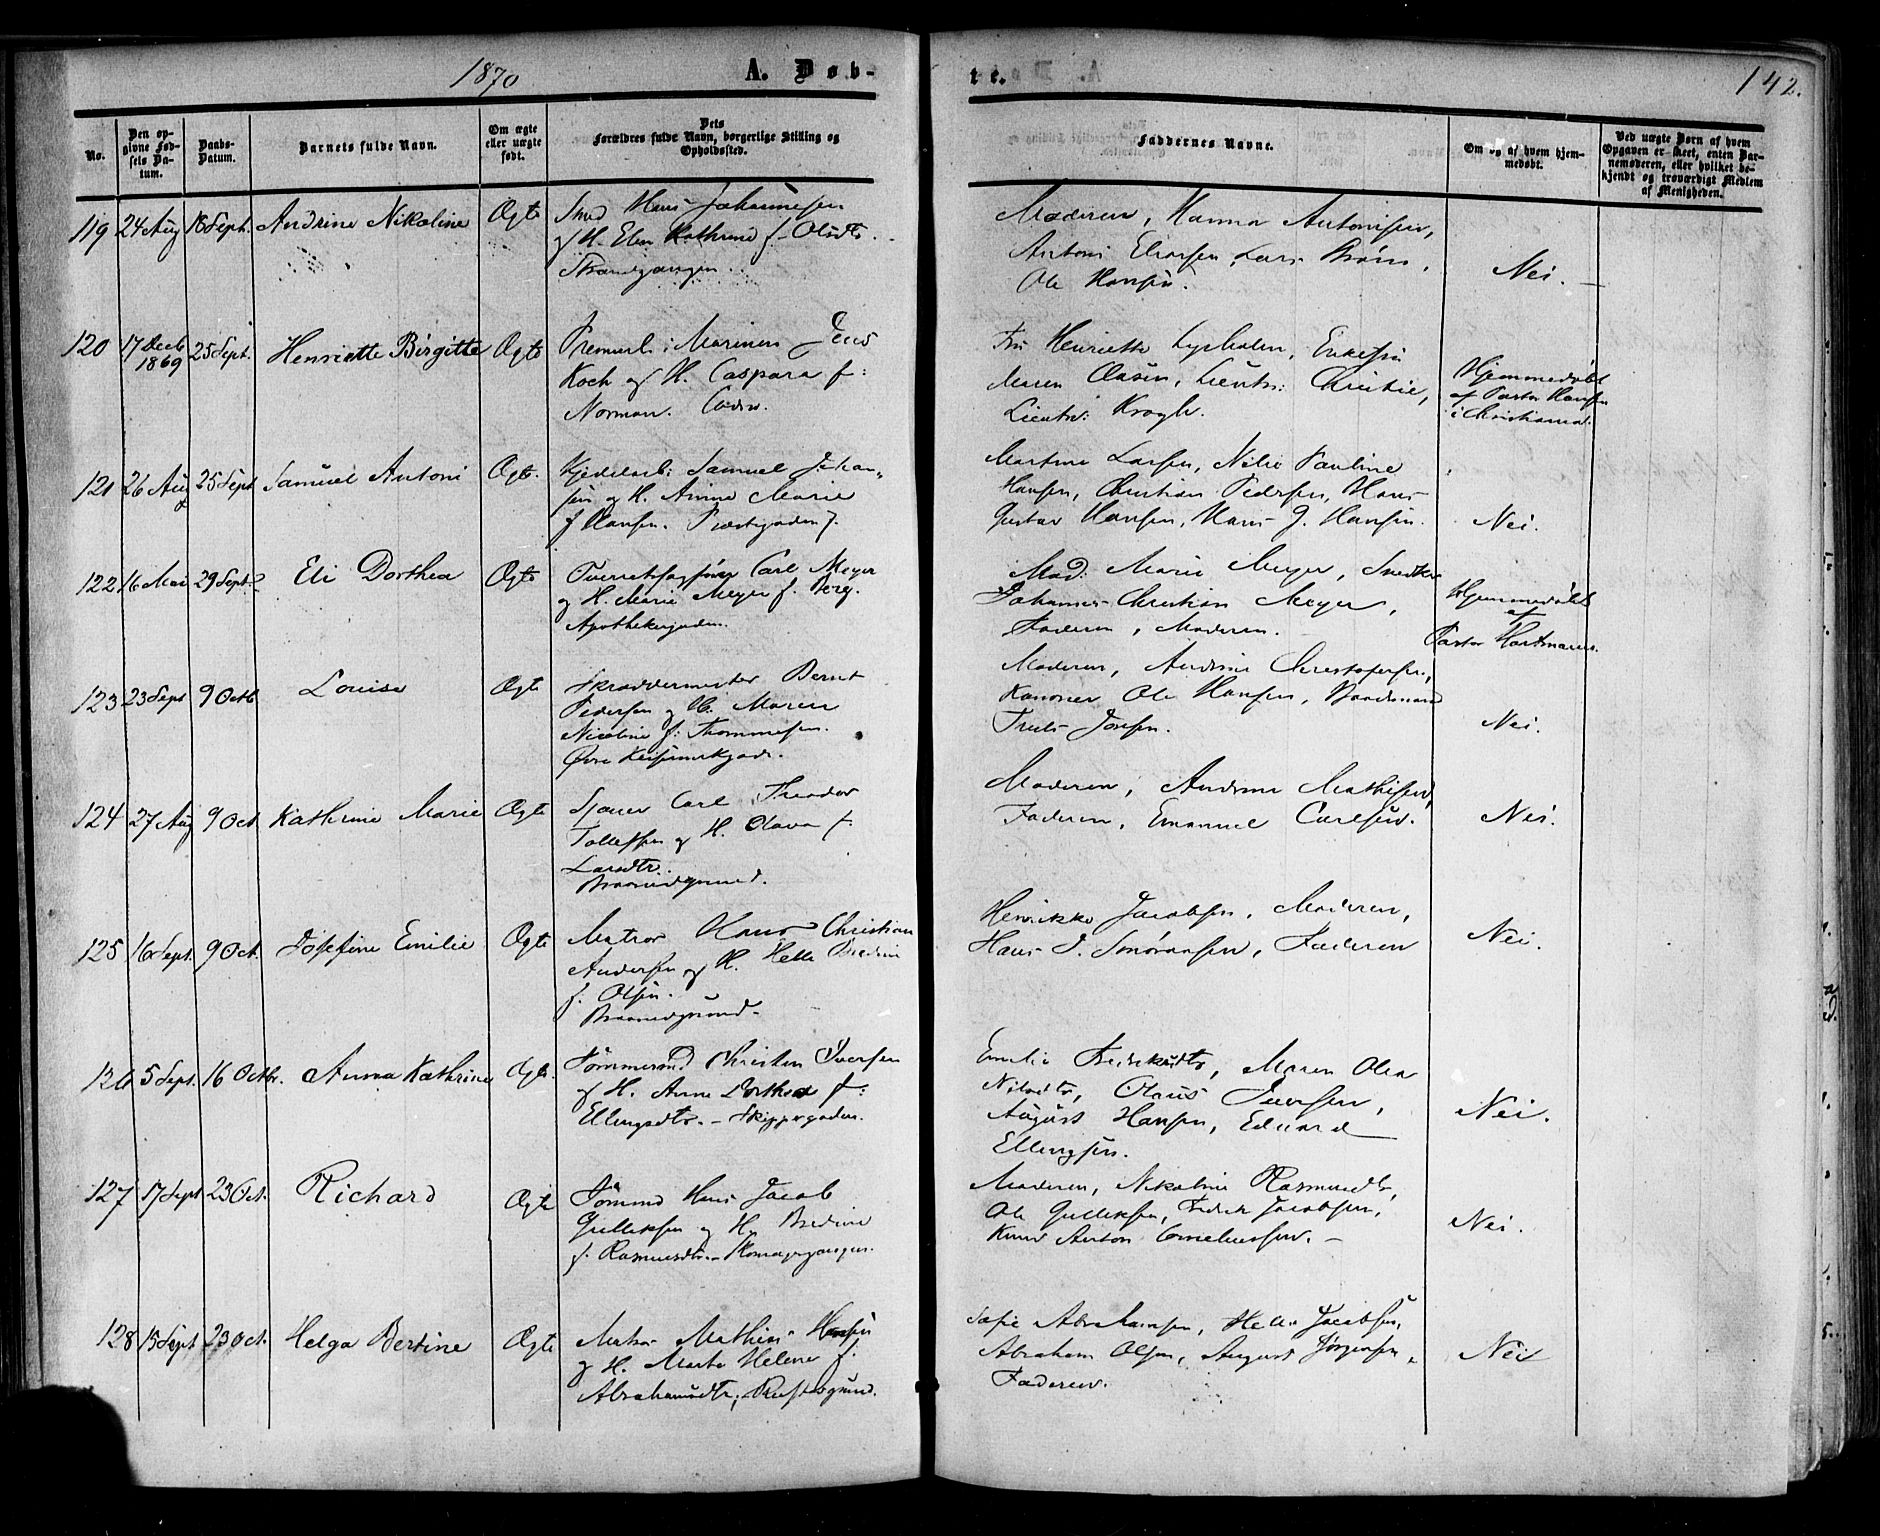 1870
A. Døb-
te.
142.
No.
Den opgivne Fødsels Datum.
Daabs-Datum.
Barnets fulde Navn.
Om ægte eller uægte født.
Dets Forældres fulde Navn, borgerlige Stilling og Opholdssted.
Faddernes Navne.
Om og af hvem hjemmedøbt.
Ved uægte Børn af hvem Opgaven er skeet, enten Barnemoderen, eller hvilket bekjendt og troværdigt Medlem af Menigheden.
119 24 Aug 18 Sept. Andrine Nikoline Ægte
Smed Hans Johannesen
og H. Elen Kathrine f. Olsdtr.
Moderen, Hanna Antonisen,
Antoni Eliasen, Lars
Ole Hansen.
Nei.
120 17 Decb 1869 25 Sept. Henriette Birgitte Ægte
Premierl: i Marinen Jens
Koch og H. Caspara f:
Norman.
Fru Henriette Lysholm, Enkefru
Maren Olsen, Lieutn: Christie,
Lieutn: Krogh.
Hjemmedøbt
af Pastor Hansen
i Christiania.
121 26 Aug 25 Sept Samuel Antoni Ægte.
Kjedelarb: Samuel Johan-
sen og H. Anne Marie
f. Hansen. Præstegaden 7.
Martine Larsen, Nilie Pauline
Hansen, Christian Pedersen, Hans
Gustav Hansen, Hans J. Hansen.
Nei.
122 16 Mai 29 Sept. Eli Dorthea Ægte
Overretssagfører Carl Meyer
og H. Marie Meyer f. Berg.
Apothekergaden.
Mad: Marie Meyer, Snedker
Johannes Christian Meyer,
Faderen, Moderen.
Hjemmedøbt
af
Pastor Hartmann.
123 23 Sept 9 Octb Louise Ægte
Skræddermester Bernt
Pedersen og H. Maren
Nicoline f: Thommesen.
Øvre
Moderen, Andrine Christophersen,
Kanoner Ole Hansen, Baadsmand
Truls Jonsen.
Nei.
124 27 Aug 9 Oct Kathrine Marie Ægte
Sjouer Carl Theodor
Tollefsen og H. Olava f.
Larsdtr.
Braarudgrund.
Moderen, Andrine Mathisen,
Faderen, Emanuel Carlsen.
Nei.
125 16 Sept. 9 Oct. Josefine Emilie Ægte
Matros Hans Christian
Andersen og H. Helle
f. Olsen.
Braarudgrund.
Henrikke Jacobsen, Moderen,
Hans J. Faderen
Nei.
126 5 Sept. 16 Octbr. Anna Kathrine Ægte.
Tømmermd Christen Iversen
og H. Anne Dorthea f:
Ellingsdtr. - Skippergaden.
Emilie Maren Olea
Nilsdtr, Olaus Iversen,
August Hansen, Edvard
Ellingsen.
Nei.
127 17 Sept 23 Oct. Richard Ægte
Tømmd Hans Jacob
Gulliksen og H.
f. Rasmusdtr. -
Moderen, Nikoline Rasmusdtr,
Ole Gulliksen, Fredrik Jacobsen,
Knud Anton Corneliussen. -
Nei.
128 15 Sept 23 Oct. Helga Bertine Ægte
Matros Mathias Hansen
og H. Marte Helene f.
Abrahamsdtr,
Sofie Abrahamsen, Helle Jacobsen,
Abraham Olsen, August Jørgensen,
Faderen.
Nei